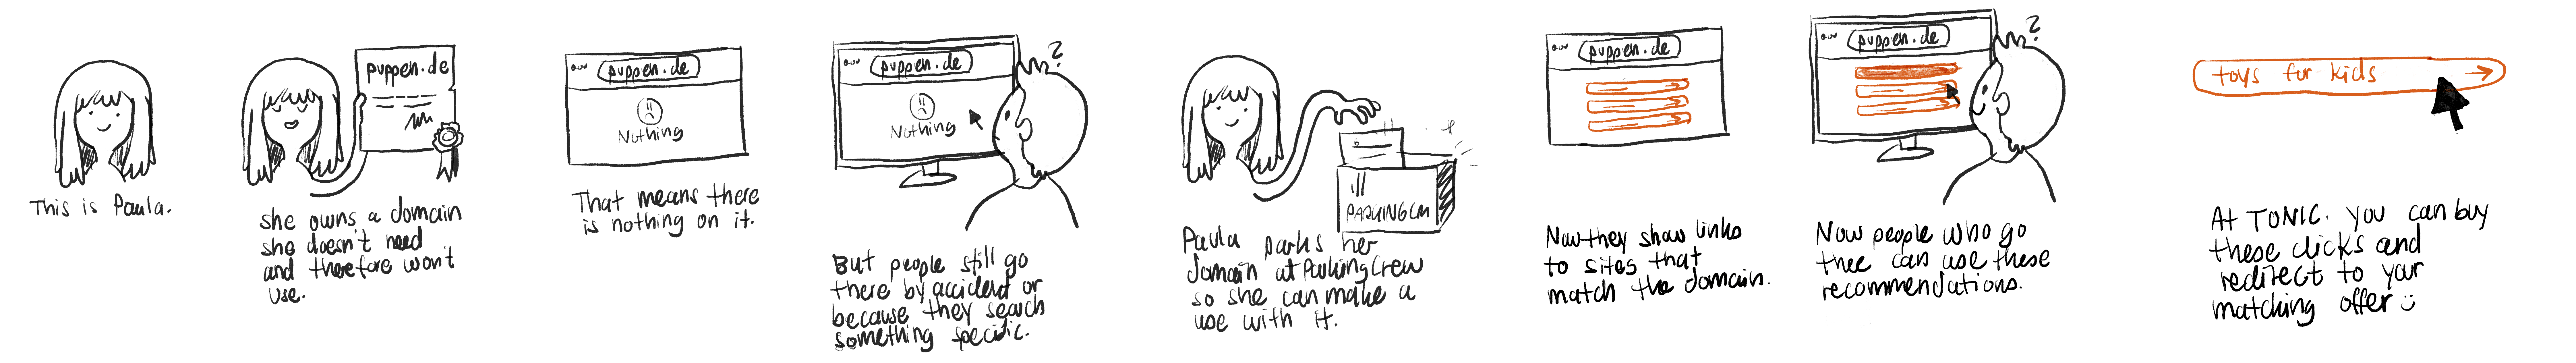 This is Paula.
puppen.de
she owns a domain
she doesn't need
and therefore won't
use.
puppen.de
Nothing
That means there
is nothing on it.
puppen.de
?
Nothing
But people still go
there by accident or
because they search
something specific.
PARKINGCM
Paula parks her
domain at ParkingCrew
so she can make a
use with it.
puppen.de
Now they show links
to sites that
match the domain.
puppen.de
?
Now people who go
thee can use these
recommendations.
toys for kids
At TONIC. you can buy
these clicks and
redirect to your
matching offer